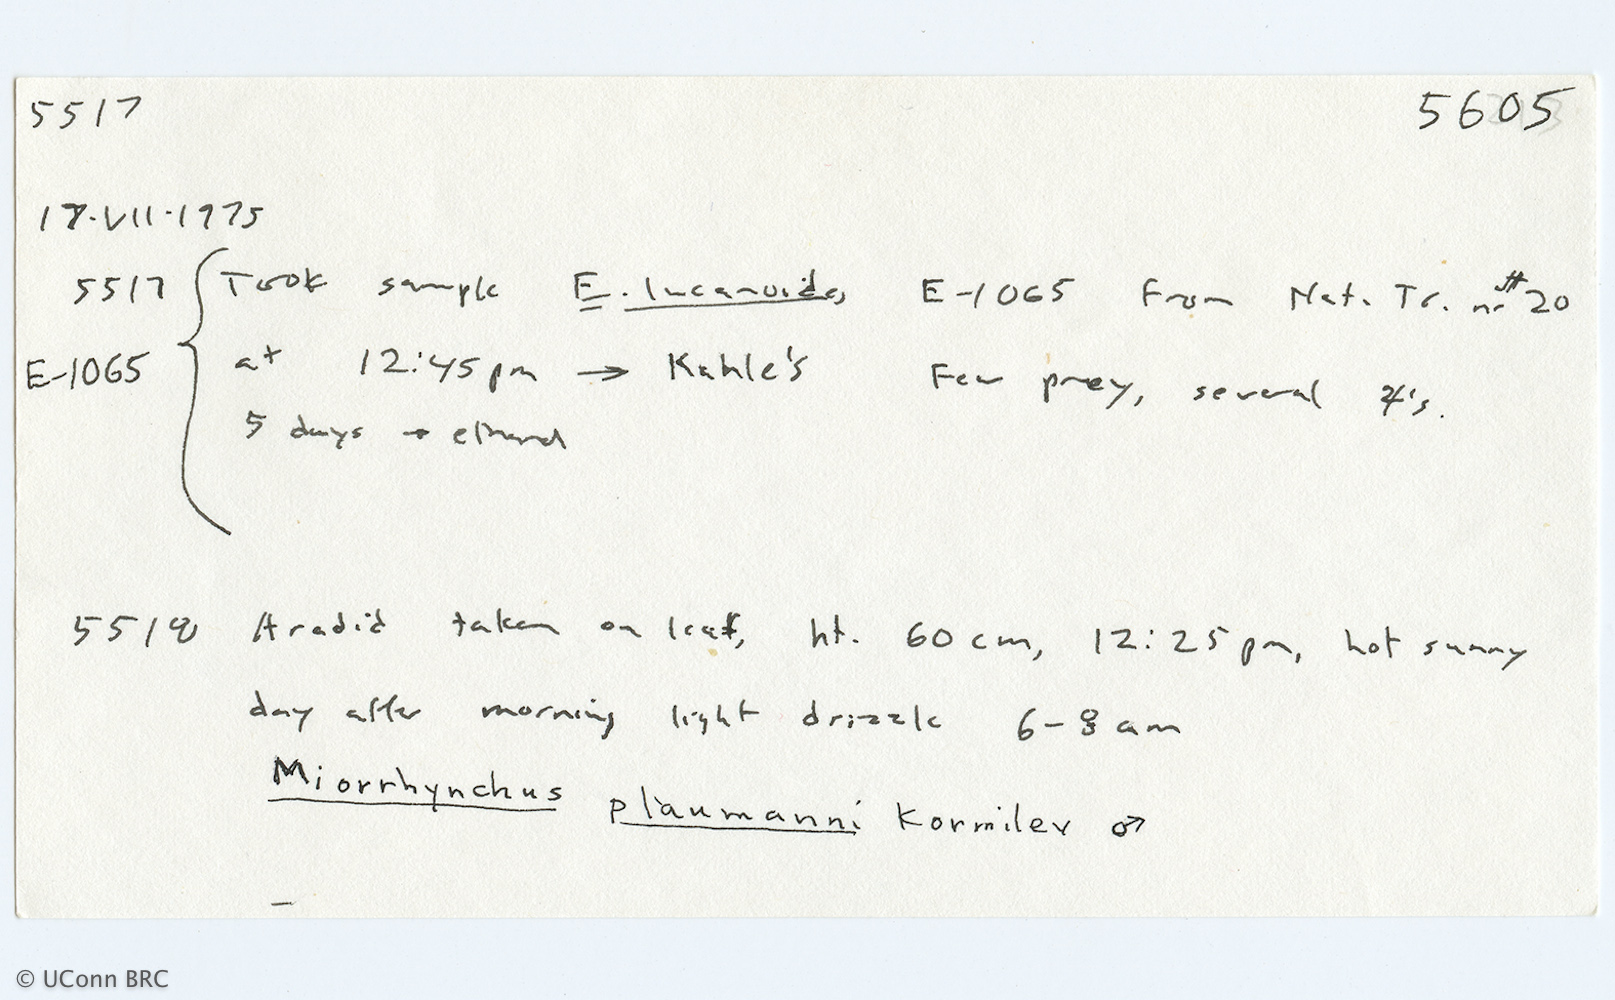 5517 5605
17·VII·1975
5517 Took sample E. lucanoides E-1065 From Nat. Tr. nr #20
E-1065 at 12:45 pm → Kahle's Few prey, several ♀'s.
5 days → ethanol
5518 Aradid taken on leaf, ht. 60 cm, 12:25 pm, hot sunny
day after morning light drizzle 6-8 am
Miorrhynchus plaumanni Kormilev ♂
© UConn BRC